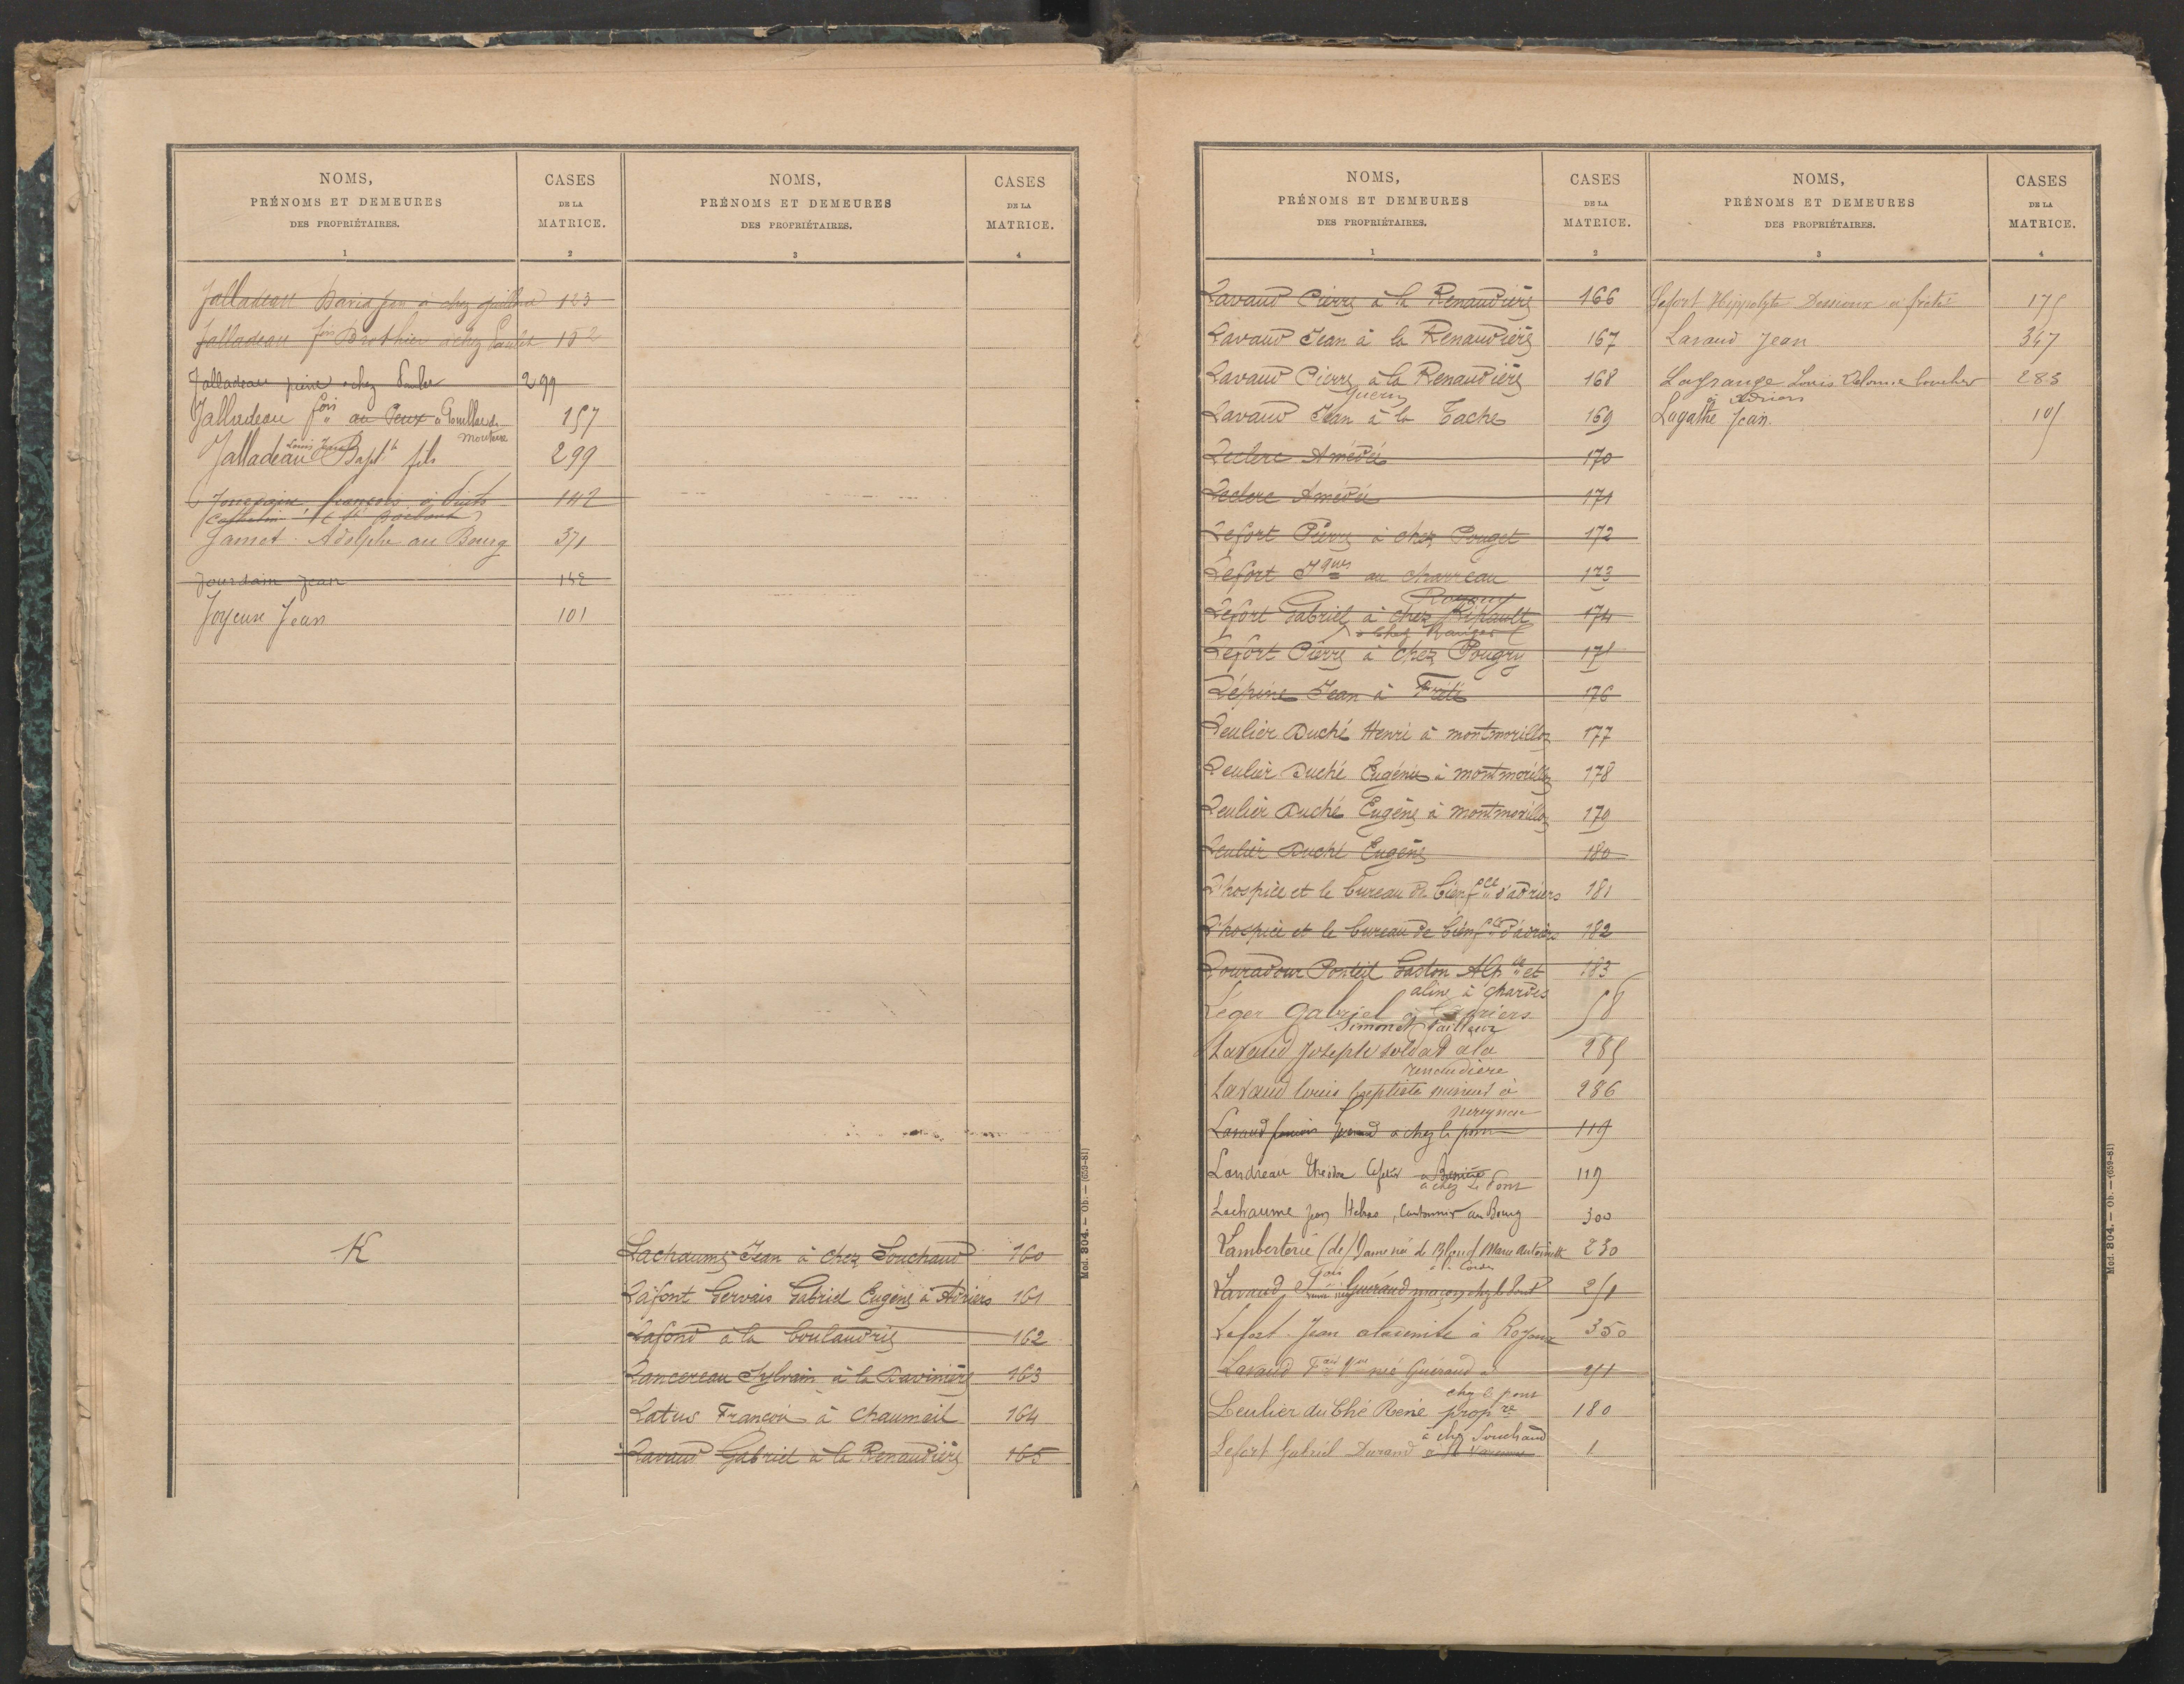 NOMS,
PRÉNOMS ET DEMEURES
DES PROPRIÉTAIRES.
1
CASES
DE LA
MATRICE.
2
NOMS,
PRÉNOMS ET DEMEURES
DES PROPRIÉTAIRES.
3
CASES
DE LA
MATRICE.
4
Jalladeau David Jean à chez 123
Jalladeau fois Brothier à chez Paulet 152
Jalladeau pierre à chez 299
Jalladeau fois au Peux à 157
Jalladeau Louis Jean Bapte fils 299
françois à 142
Jamet Adolphe au Bourg 371
Jourdain Jean 142
Joyeux Jean 101
K
Lachaume Jean à chez Souchaud 160
Lafont Gervais Gabriel Eugène à Adriers 161
Lafond à la Coulaudrie 162
Lancereau Sylvain à la Davinière 163
Latus François à Chaumeil 164
Lavaud Gabriel à la Renaudière 165
Mod. 804. — Ob. — (659-81)
NOMS,
PRÉNOMS ET DEMEURES
DES PROPRIÉTAIRES.
1
CASES
DE LA
MATRICE.
2
NOMS,
PRÉNOMS ET DEMEURES
DES PROPRIÉTAIRES.
3
CASES
DE LA
MATRICE.
4
Lavaud Pierre à la Renaudière 166
Lavaud Jean à la Renaudière 167
Lavaud Pierre à la Renaudière 168
Lavaud Jean à la Tache 169
Leclerc Amédée 170
Leclerc Amédée 171
Lefort Pierre à chez Pouget 172
Lefort Jques au charreau 173
Lefort Gabriel à chez Ribault 174
Lefort Pierre à chez Pougry 175
Lépine Jean à Frété 176
Leulier Duché Henri à montmorillon 177
Leulier Duché Eugénie à montmorillon 178
Leulier Duché Eugène à montmorillon 179
Leulier Duché Eugène 180
L'hospice et le bureau de bienfce d'adriers 181
L'hospice et le bureau de bienfce d'adriers 182
Louradour Ponteil Gaston Alph et 183
aline à chardes
Léger Gabriel à 58
Simonet Tailleur
Lavaud Joseph soldat à la 285
renaudière
Lavaud Louis baptiste mineur à 286
Lavaud à chez le pont 119
Landreau Théodore 119
à chez Le Pont
Lachaume Jean Hebras, Cantonnier au Bourg 300
Lamberterie (de) Dame née de Blond Marie Antoinette 230
Lavaud Fois née Guéraud maçon chez le Pont 251
Lefort Jean à Royoux 350
Lavaud Fois née Guéraud à 251
chez le pont
Leulier du Ché René propre 180
à chez Souchaud
Lefort Gabriel Durand à 1
Lefort Hippolyte Desroux à frété 175
Lavaud Jean 347
Lagrange Louis Delorme boucher 283
à Adriers
Lagathe Jean 105
Mod. 804. — Ob. — (659-81)